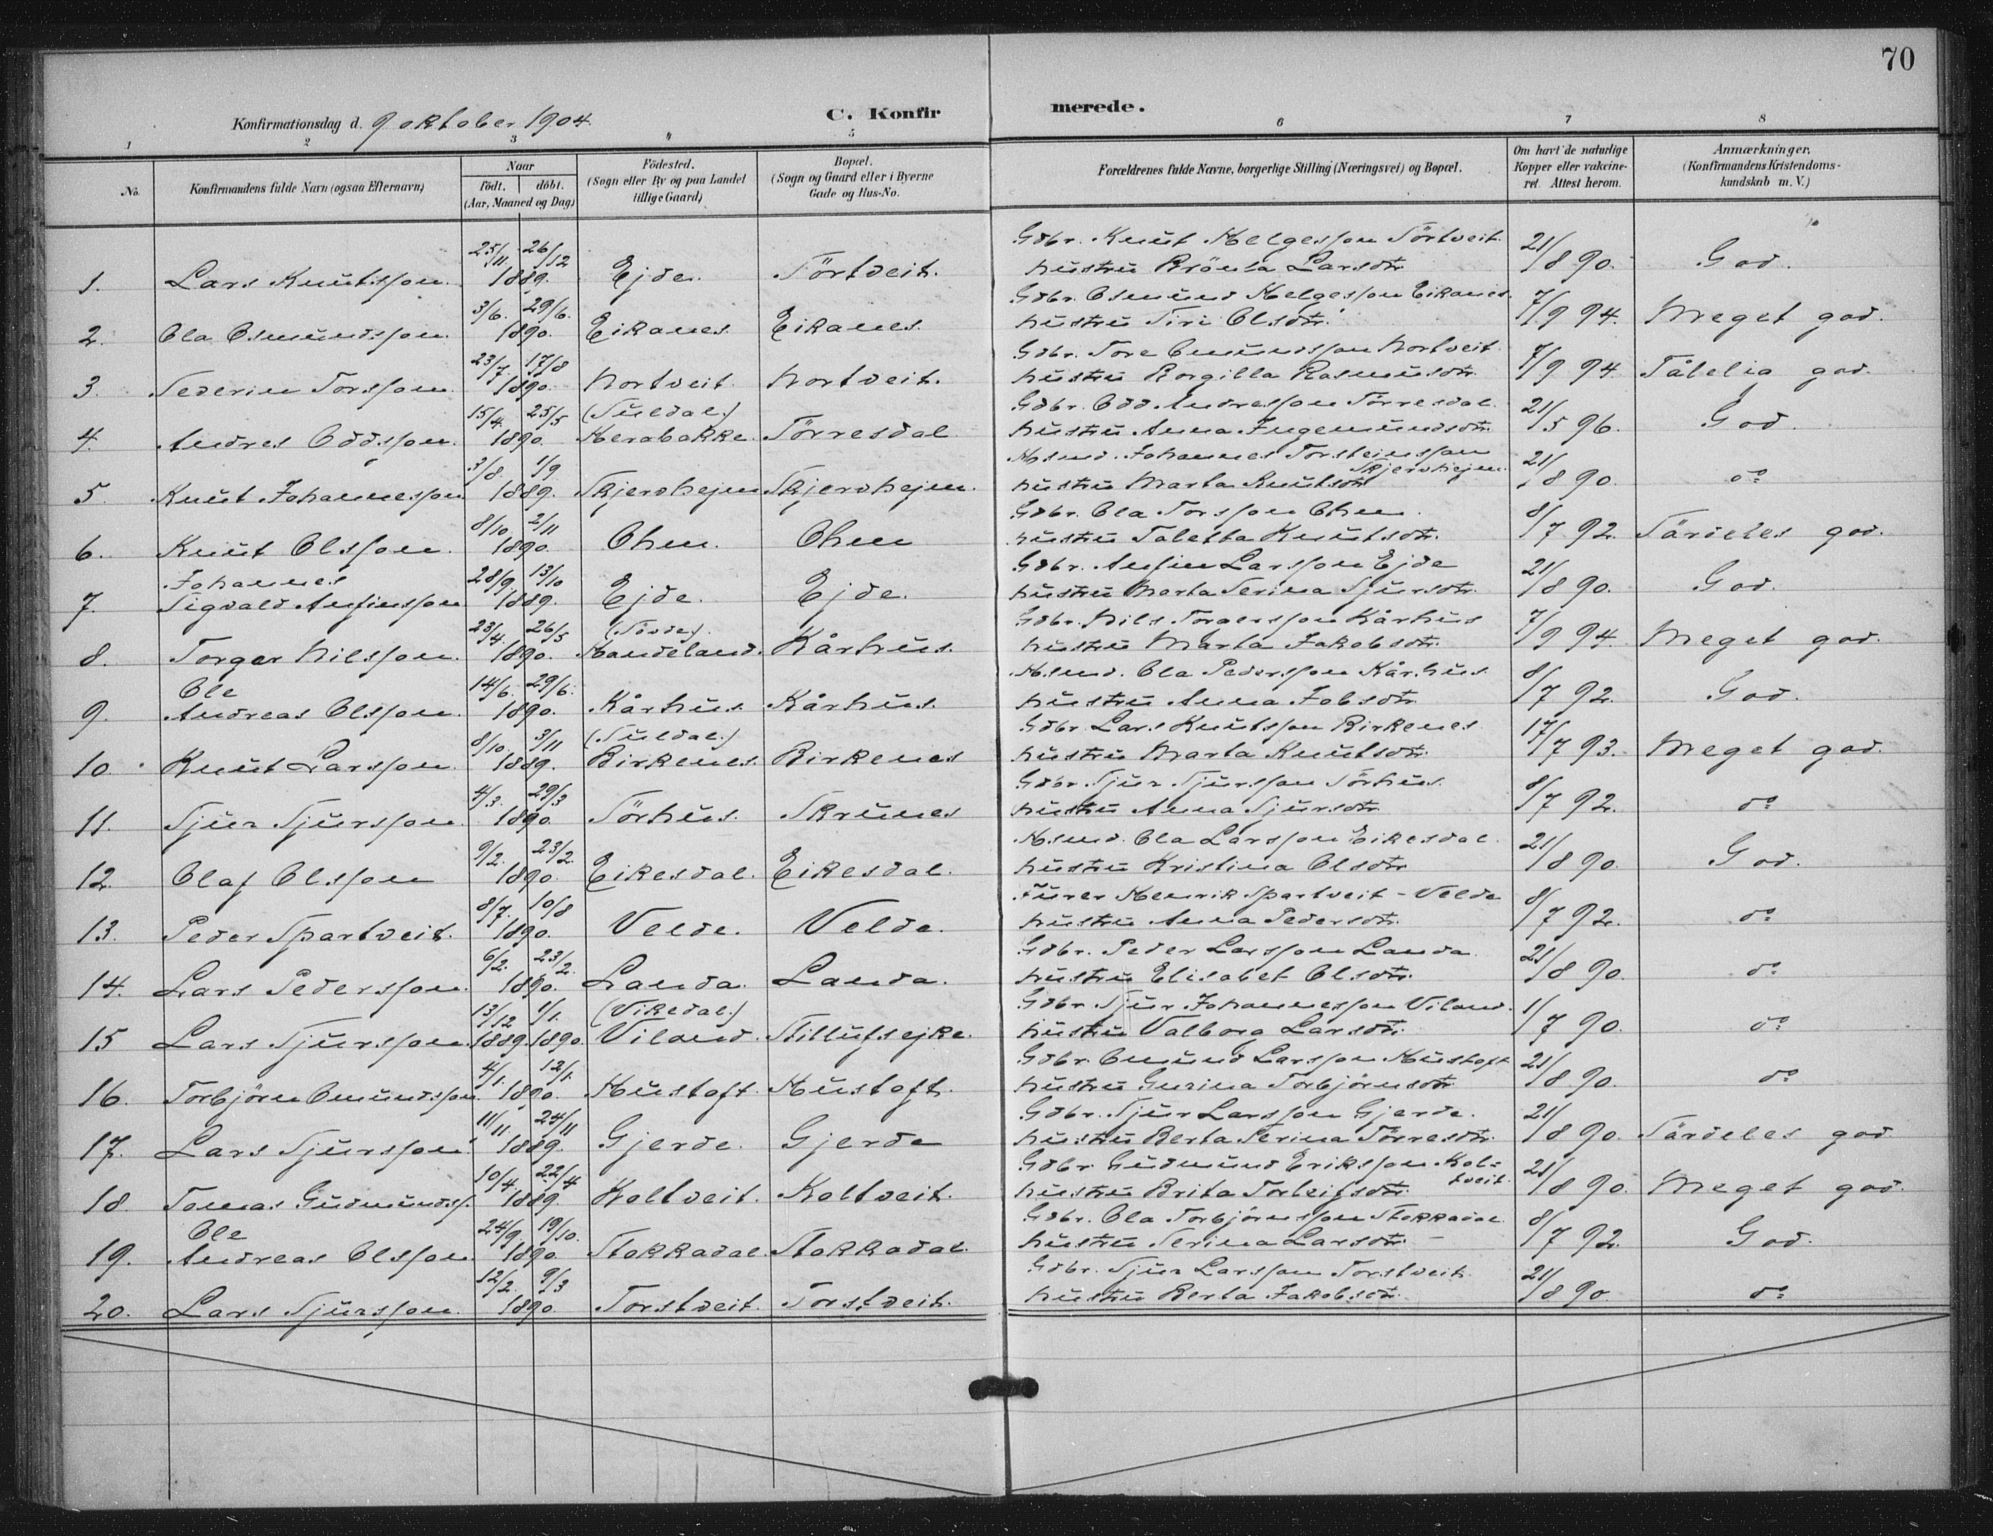 70
Konfirmationsdag d. 9 oktober 1904.
C. Konfir merede.
1 2 3 " 5 6 7 8
No.
Konfirmandens fulde Navn (ogsaa Efternavn)
Naar
Födt. döbt.
(Aar, Maaned og Dag)
Födested.
(Sogn eller By og paa Landet
tillige Gaard)
Bopæl.
(Sogn og Gaard eller i Byerne
Gade og Hus-No.
Forældrenes fulde Navne, borgerlige Stilling (Næringsvei) og Bopæl.
Om havt de naturlige
Kopper eller vakcine-
ret. Attest herom.
Anmærkninger.
(Konfirmandens Kristendoms-
kundskab m. V.)
25/11. 26/12 Gdbr. Knut Helgesson Törtveit. 21/
1. Lars Knutsson. 1889. Ejde. Törtveit. hustru Brönla Larsdtr. /8 90. God.
3/6. 29/6. Gdbr. Osmund Helgesson Eikanes. 7/
2. Ola Osmundsson. 1890. Eikanes. Eikanes. hustru Siri Olsdtr. /9 94. Meget god.
23/7 17/8 Gdbr. Tore Omundsson Nortveit. 7/
3. Severin Torsson. 1890. Nortveit. Nortveit. hustru Borgilla Rasmusdtr. /9 94. Tålelig god.
15/4. 25/5 (Suldal.) Gdbr. Odd Andresson Törresdal. 21/
4. Andres Oddsson. 1890. Herabakke. Törresdal. hustru Anna Ingemundsdtr. /5 96. God.
3/8. 1/9 Hsmd. Johannes Torsteinsson 21/
5. Knut Johannesson 1889. Skjervhejm Skjervhejm. hustru Marta Knutsdtr. Skjervhejm. /8 90. do
8/10. 2/11 Gdbr. Ola Torsson Ohm. 8/
6. Knut Olsson. 1890. Ohm. Ohm hustru Taletta Knutsdtr. /7 92. Särdeles god.
Johannes 28/9. 13/10 Gdbr. Anfin Larsson Ejde 21/
7. Sigvald Anfinsson 1889. Ejde. Ejde. hustru Marta Serina Sjursdtr. /8 90. God.
23/4. 26/5 (Sövde). Gdbr. Nils Torgersson Kårhus 7/
8. Torger Nilsson. 1890. Handeland. Kårhus. hustru Marta Jakobsdtr. /9 94. Meget god.
Ole 14/6. 29/6. Hsmd. Ola Pedersson Kårhus 8/
9. Andreas Olsson. 1890. Kårhus Kårhus. hustru Anna Jobsdtr. /7 92. God.
8/10. 3/11 (Suldal.) Gdbr. Lars Knutsson Birkenes. 17/
10. Knut Larsson. 1889. Birkenes. Birkenes hustru Marta Knutsdtr. /7 93. Meget god.
4/3. 29/3 Gdbr. Sjur Sjursson Sörhus. 8/
11. Sjur Sjursson. 1890. Sörhus. Skrunes hustru Anna Sjursdtr. /7 92. do
9/2. 23/2. Hsmd. Ola Larsson Eikesdal. 21/
12. Olaf Olsson 1890. Eikesdal. Eikesdal. hustru Kristina Olsdtr. /8 90. God.
8/7. 10/8 Furer Henrik Spartveit - Velde 8/
13. Peder Spartveit. 1890. Velde. Velde. hustru Anna Pedersdtr. /7 92. do
6/2. 23/2. Gdbr. Peder Larsson Landa. 21/
14. Lars Pedersson. 1890. Landa. Landa. hustru Elisabet Olsdtr. /8 90. do
13/12 1/1. (Vikedal.) Gdbr. Sjur Johannesson Viland. 1/
15 Lars Sjursson. 1889. 1890. Viland. Stillufsejke. hustru Valborg Larsdtr. /7 90. do
4/1. 12/1. Gdbr. Omund Larsson Hustoft 21/
16. Torbjörn Omundsson 1890. Hustoft. Hustoft. hustru Gurina Torbjörnsdtr /8 90. do
11/11 24/11 Gdbr. Sjur Larsson Gjerde. 21/
17. Lars Sjursson. 1889. Gjerde. Gjerde hustru Berta Serina Törresdtr. /8 90. Särdeles god
10/4. 22/4 Gdbr. Gudmund Eriksson Kol- 21/
18. Tomas Gudmundss. 1889. Koltveit. Koltveit. hustru Brita Torleifsdtr. tveit. /8 90. Meget god.
Ole 24/9. 19/10. Gdbr. Ola Torbjörnsson Stokkadal 8/
19. Andreas Olsson 1890. Stokkadal. Stokkadal. hustru Serina Larsdtr. /7 92. God.
12/2. 9/3 Gdbr. Sjur Larsson Torstveit. 21/
20. Lars Sjursson. 1890. Torstveit. Torstveit. hustru Berta Jakobsdtr. /8 90. do